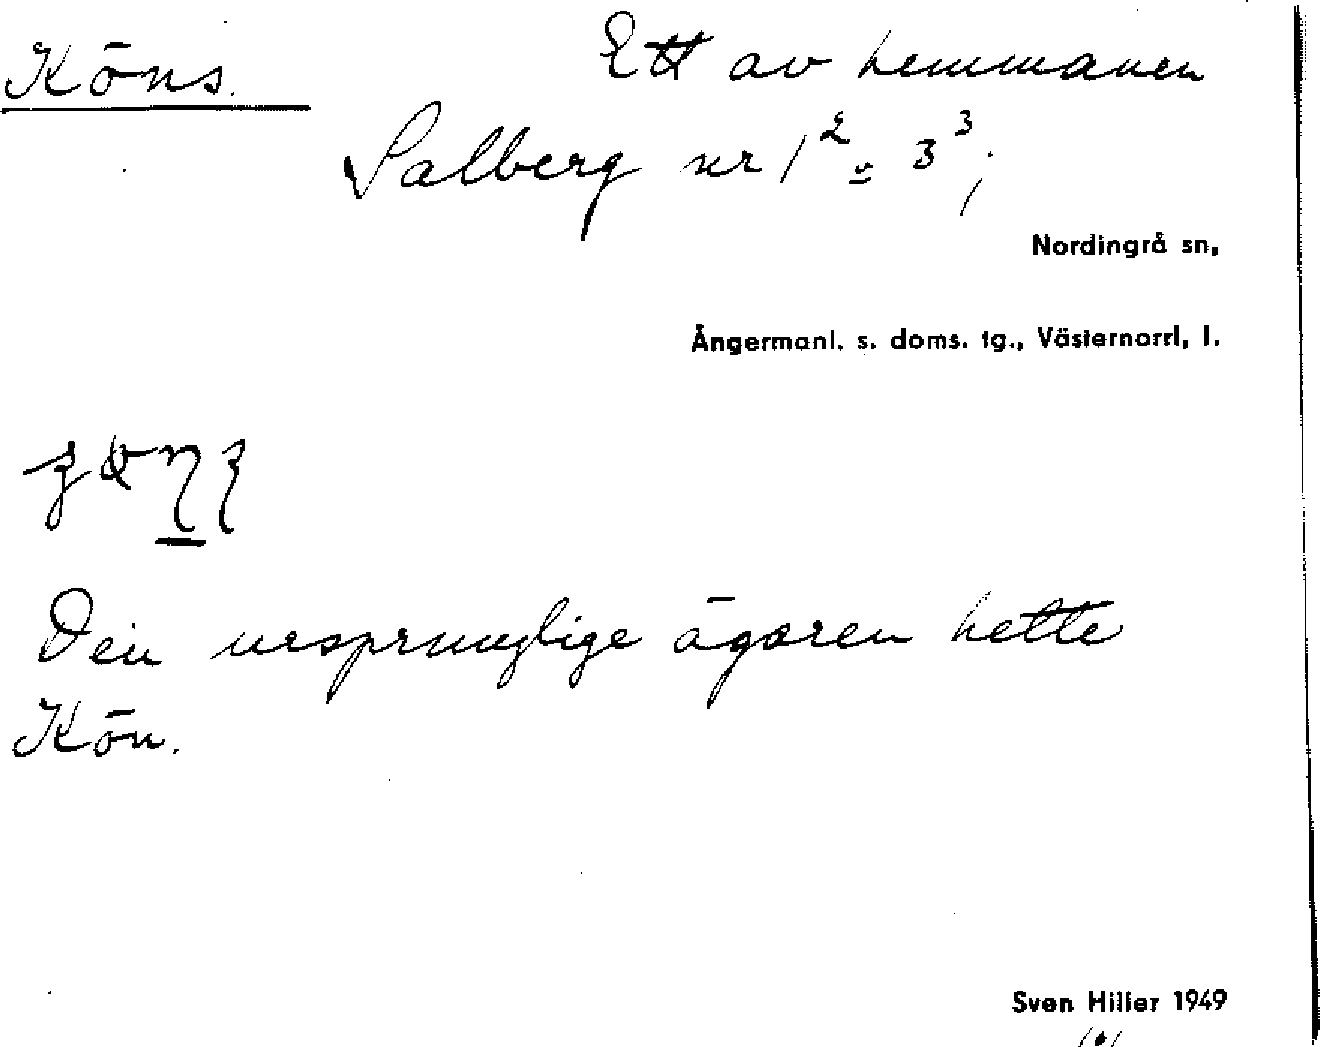 Köns. Ett av hemmanen
Salberg nr 1² o 3³;
Nordingrå sn,
Ångermanl. s. doms. tg., Västernorrl, l.
Den ursprunglige ägaren hette
Kön.
Sven Hillier 1949